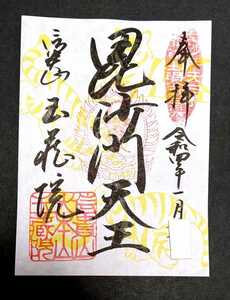 奉拝
令和四年一月
毘沙門天王
信貴山
玉蔵院